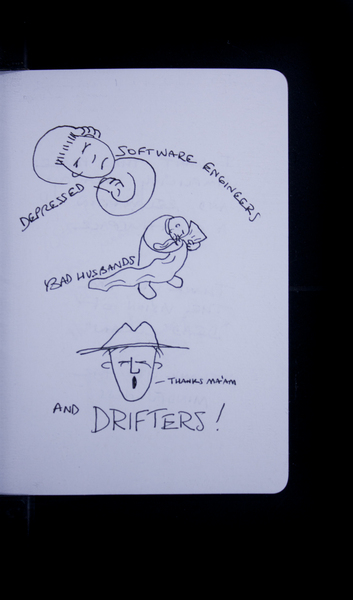 DEPRESSED SOFTWARE ENGINEERS
BAD HUSBANDS
THANKS MA'AM
AND DRIFTERS!